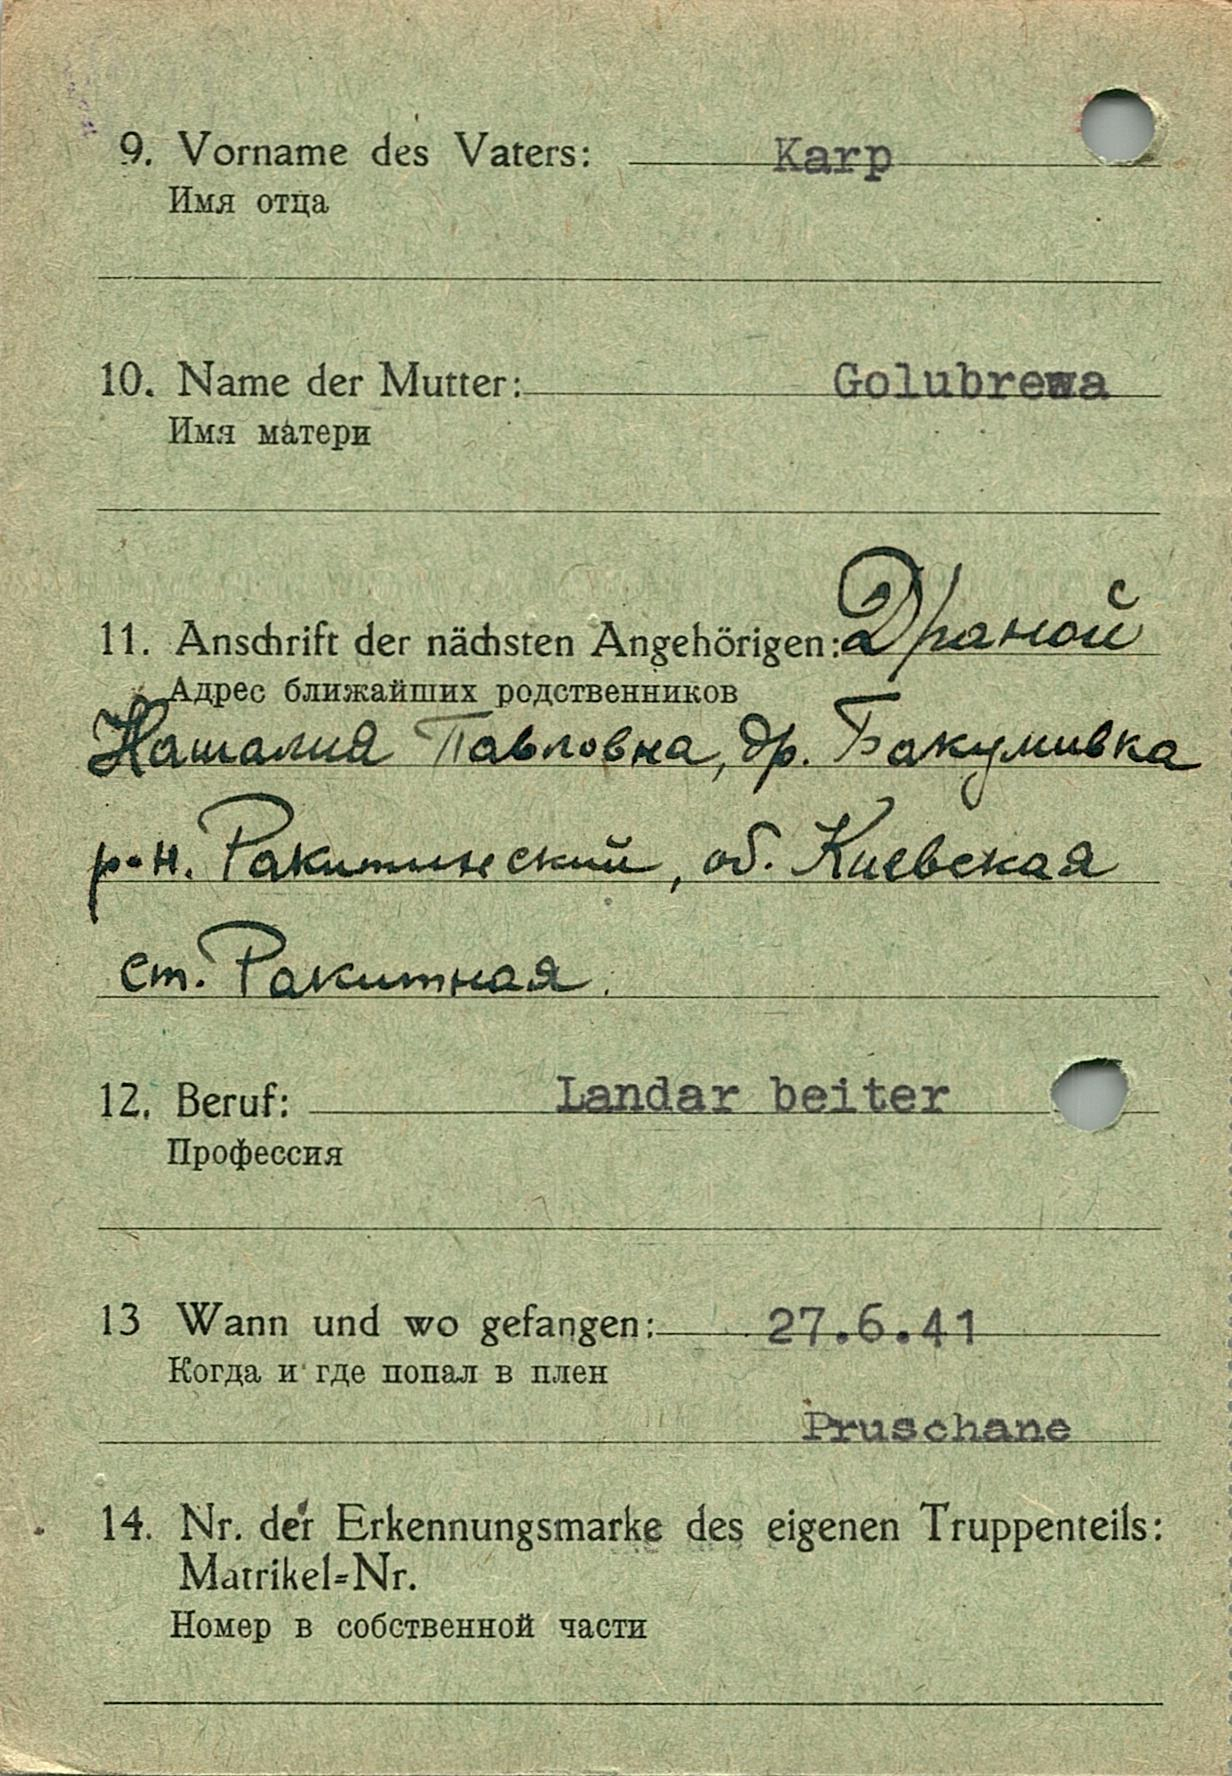 9. Vorname des Vaters: Karp
Имя отца
10. Name der Mutter: Golubrewa
Имя матери
11. Anschrift der nächsten Angehörigen: Драной
Адрес ближайших родственников
Наталия Павловна, др. Бакумивка
р-н. Ракитинский, об. Киевская
ст. Ракитная.
12. Beruf: Landar beiter
Профессия
13 Wann und wo gefangen: 27.6.41
Когда и где попал в плен
Pruschane
14. Nr. der Erkennungsmarke des eigenen Truppenteils:
Matrikel-Nr.
Номер в собственной части